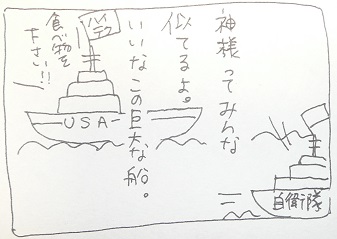 神様ってみんな
似てるよ。
いいなこの巨大な船。
ハイテク
食べ物を
下さい!!
USA
自衛隊